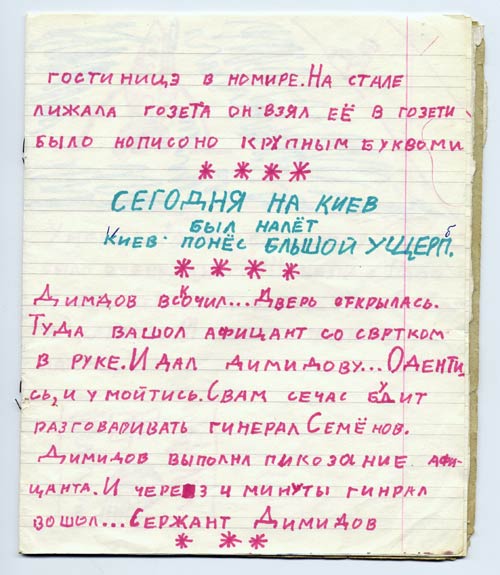 гостиницэ в номире. На стале
лижала гозета он взял её в гозети
было нописоно крупным буквоми
* * * *
Сегодня на Киев
был налёт
Киев понёс блышой ущерп.б
* * * *
Димдов вскочил... Дверь открылась.
Туда вашол афицант со свртком
в руке. И дал димидову... Оденти-
сь, и умойтись. Свам сечас будит
разговаривать гинерал Семёнов.
Димидов выполнл пикозание афи-
цанта. И через 4 минуты гинрал
вошол... Сержант Димидов
* * *